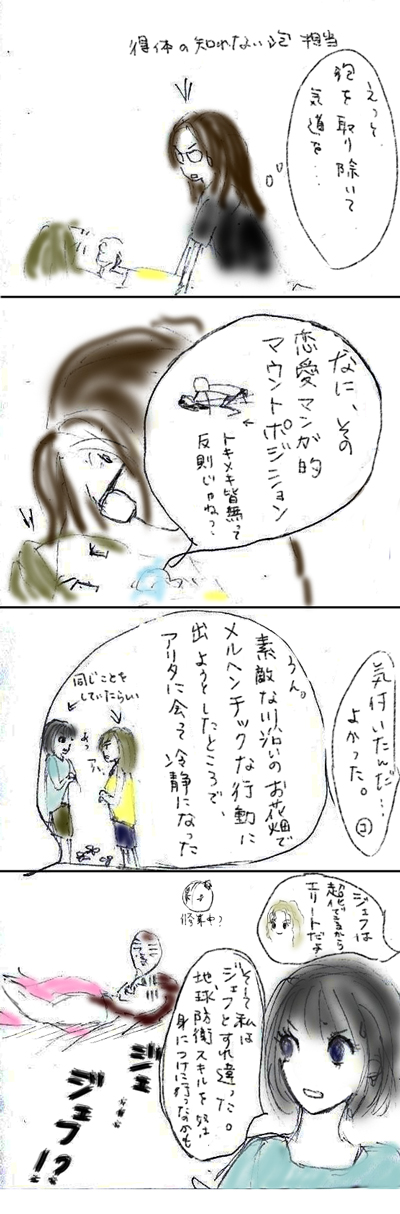 得体の知れない泡 担当
えっと
泡を取り除いて
気道を…
なに、その
恋愛マンガ的
マウントポジション
トキメキ皆無って
反則じゃねっ、
気付いたんだ…
よかった。
うん。
素敵な川沿いのお花畑で
メルヘンチックな行動に
出ようとしたところで、
アリタに会って冷静になった
同じことを
していたらしい
あ
あ、
ジェフは
超できるから
エリートだヨ
そして私は
ジェフとすれ違った。
地球防衛スキルを
身につけに行ったのかも
ジェ
ジェフ!?